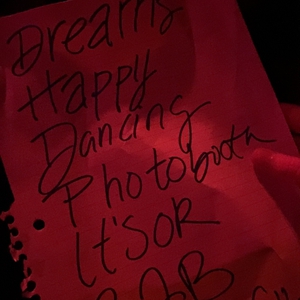 Dreams
Happy
Dancing
Photobooth
It'SOK